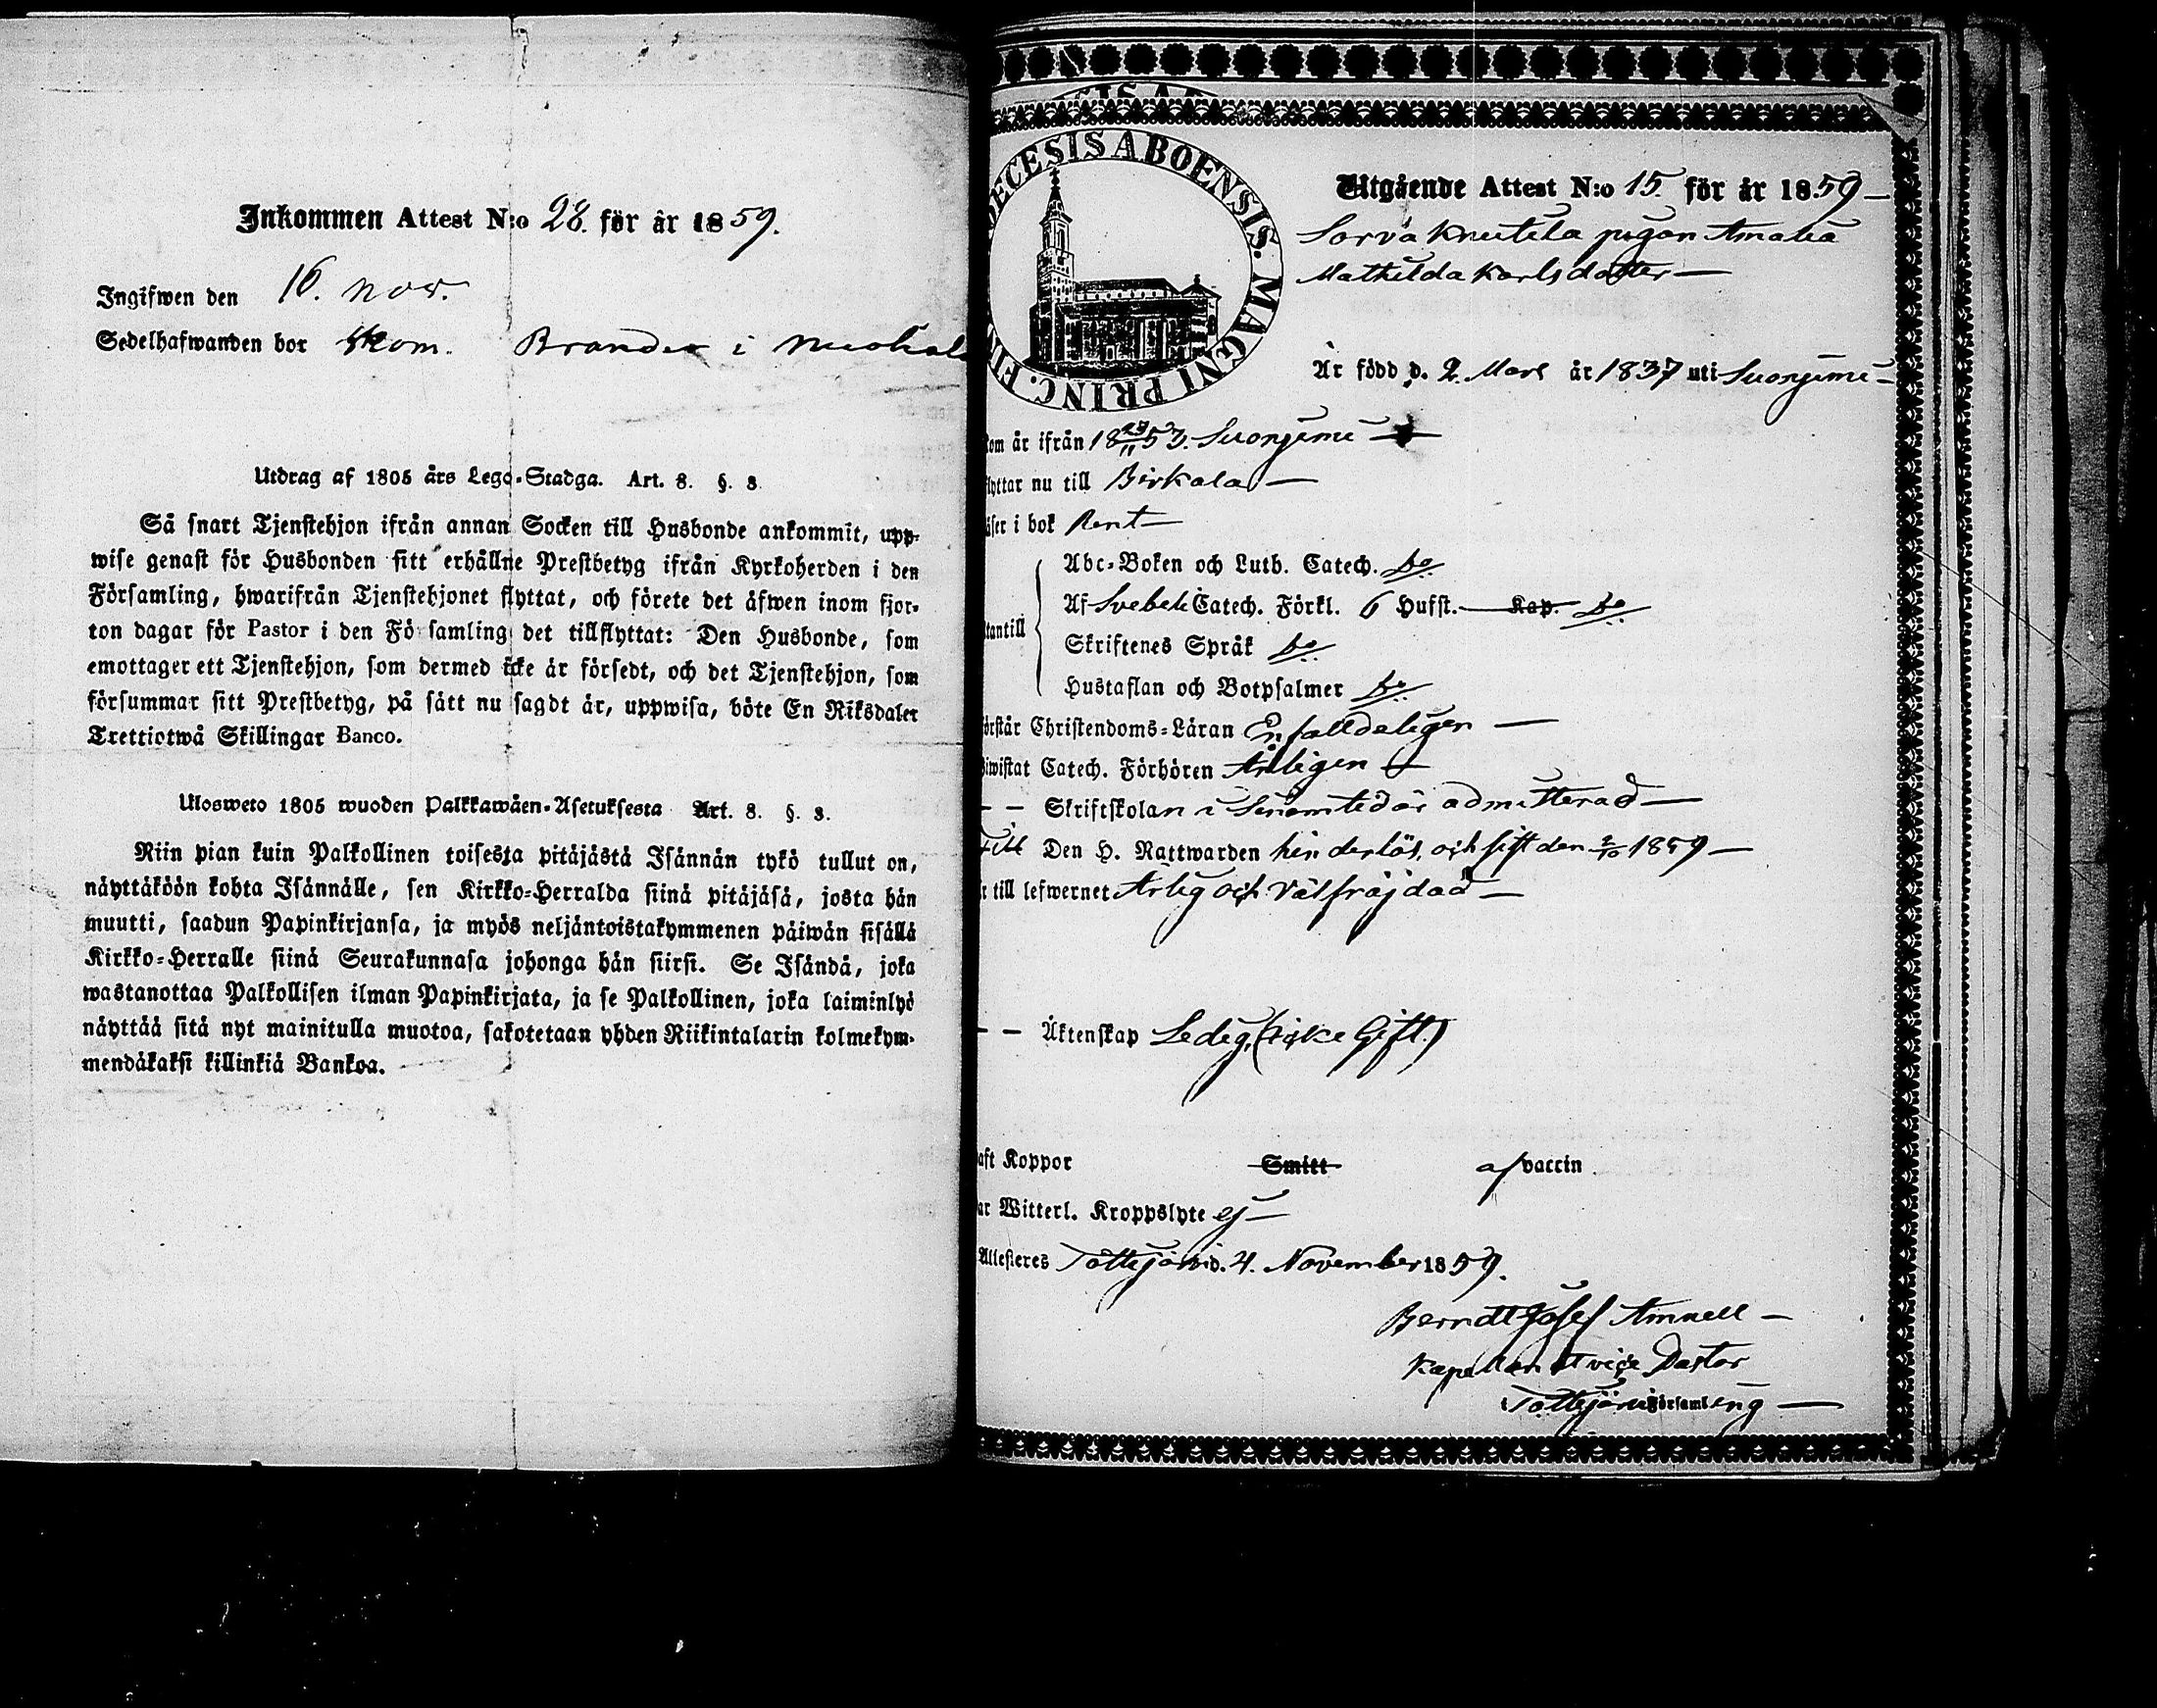 Inkommen Attest N:o 28. för år 1859.
Ingifwen den 16. nov.
Sedelhafwanden bor hkom. Brander i
Utdrag af 1805 års Lego-Stadga. Art. 8. §. 8.
Så snart Tjenstehjon ifrån annan Socken till Husbonde ankommit, upp-
wise genast för Husbonden sitt erhållne Prestbetyg ifrån Kyrkoherden i den
Församling, hwarifrån Tjenstehjonet flyttat, och förete det äfwen inom fjor-
ton dagar för Pastor i den Fö samling det tillflyttat: Den Husbonde, som
emottager ett Tjenstehjon, som dermed icke är försedt, och det Tjenstehjon, som
försummar sitt Prestbetyg, på sätt nu sagdt är, uppwisa, böte En Riksdaler
Trettiotwå Skillingar Banco.
Ulosweto 1805 wuoden Palkkawäen-Asetuksesta Art. 8. §. 8.
Niin pian kuin Palkollinen toisesta pitäjästä Isännän tykö tullut on,
näyttäköön kohta Isännälle, sen Kirkko-Herralda siinä pitäjäsä, josta hän
muutti, saadun Papinkirjansa, ja myös neljäntoistakymmenen päiwän sisällä
Kirkko-Herralle siinä Seurakunnasa johonga hän siirsi. Se Isändä, joka
wastanottaa Palkollisen ilman Papinkirjata, ja se Palkollinen, joka laiminlyö
näyttää sitä nyt mainitulla muotoa, sakotetaan yhden Riikintalarin kolmekym-
mendäkaksi killinkiä Bankoa.
DECESIS ABOENSIS. MAGNI PRINC. FIN
Utgående Attest N:o 15. för år 1859
Sorva Knutela pigan Amalia
Mathilda Karlsdotter
Är född d. 2. Mars år 1837 uti Suoniemi
kom år ifrån 18 27/11 53. Suoniemi
flyttar nu till Birkala
läser i bok Rent
Utantill
Abc-Boken och Luth. Catech. do
Af Svebeli Catech. Förkl. 6 Hufst. Kap. do
Skriftenes Språk do
Hustaflan och Botpsalmer do
Förstår Christendoms-Läran Enfalldeligen
Biwistat Catech. Förhören Årligen
Skriftskolan i Sinomtid är admitterad
Till Den H. Nattwarden hinderlös, och sist den 2/10 1859
till lefwernet Ärlig och Välfräjdad
Äktenskap Ledig, (icke Gift.)
haft Koppor Smitt af vaccin
har Witterl. Kroppslyte ej
Attesteres Tottijärvi d. 4. November 1859.
Berndt Josef Amnell
Kapellan et vice Pastor
i Tottijärvi Församling